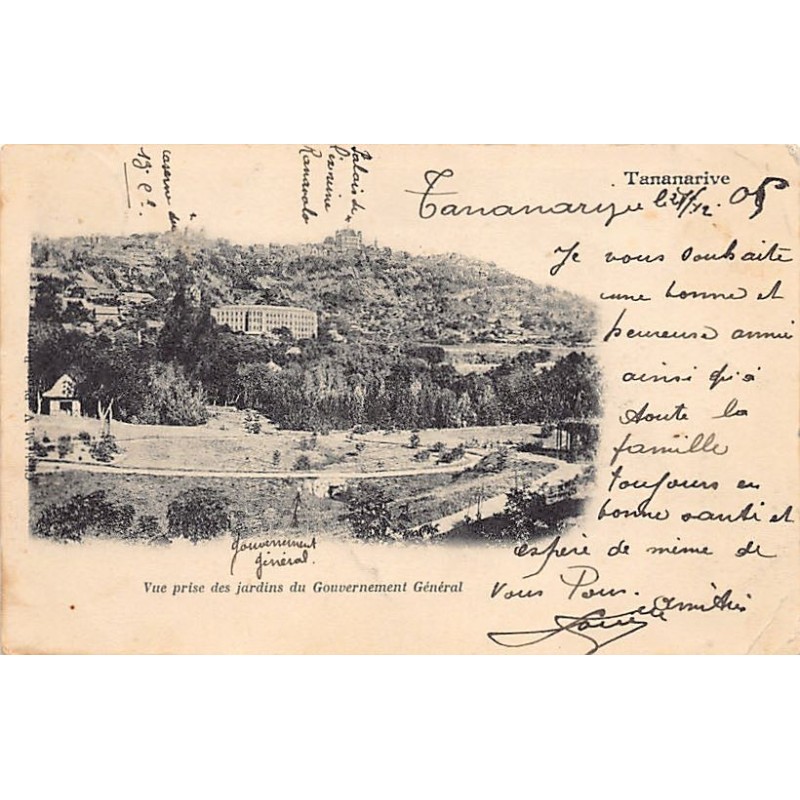 Tananarive
Tananarive le 27/12. 05
Je vous souhaite
une bonne et
heureuse année
ainsi qu'à
toute la
famille
toujours en
bonne santé et
espère de même de
vous Tous.
Amitiés
caserne du
13e Cie
Palais de
Reine
Ranavalo
Gouvernement
général.
Vue prise des jardins du Gouvernement Général